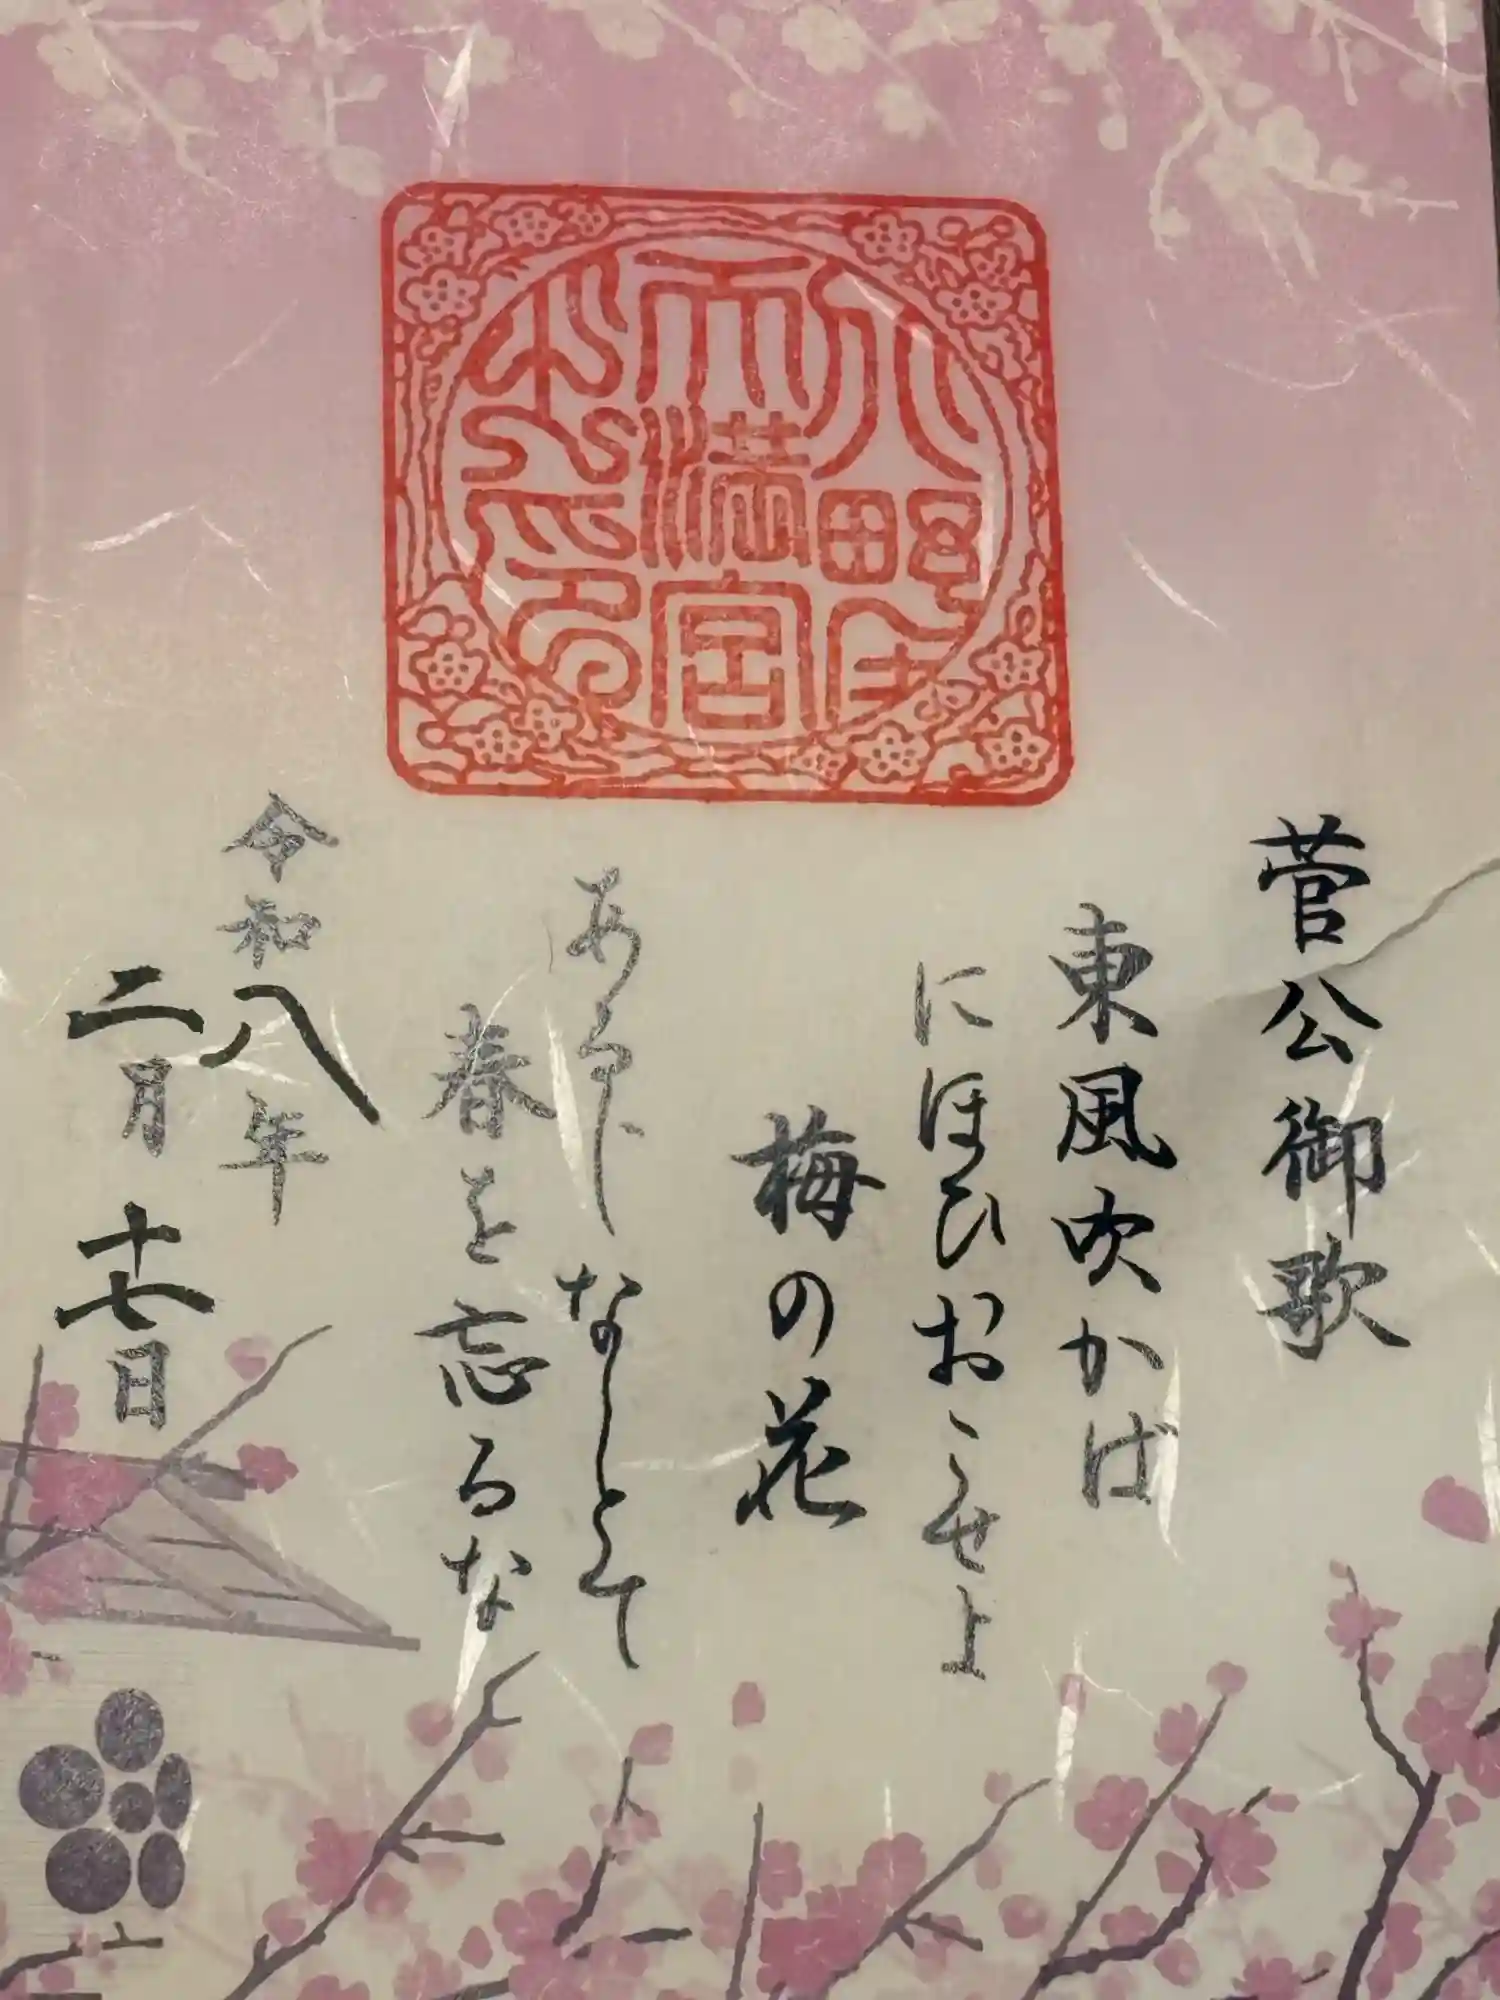 天満宮
菅公御歌
東風吹かば
にほひおこせよ
梅の花
あるじなしとて
春を忘るな
令和八年
二月十七日